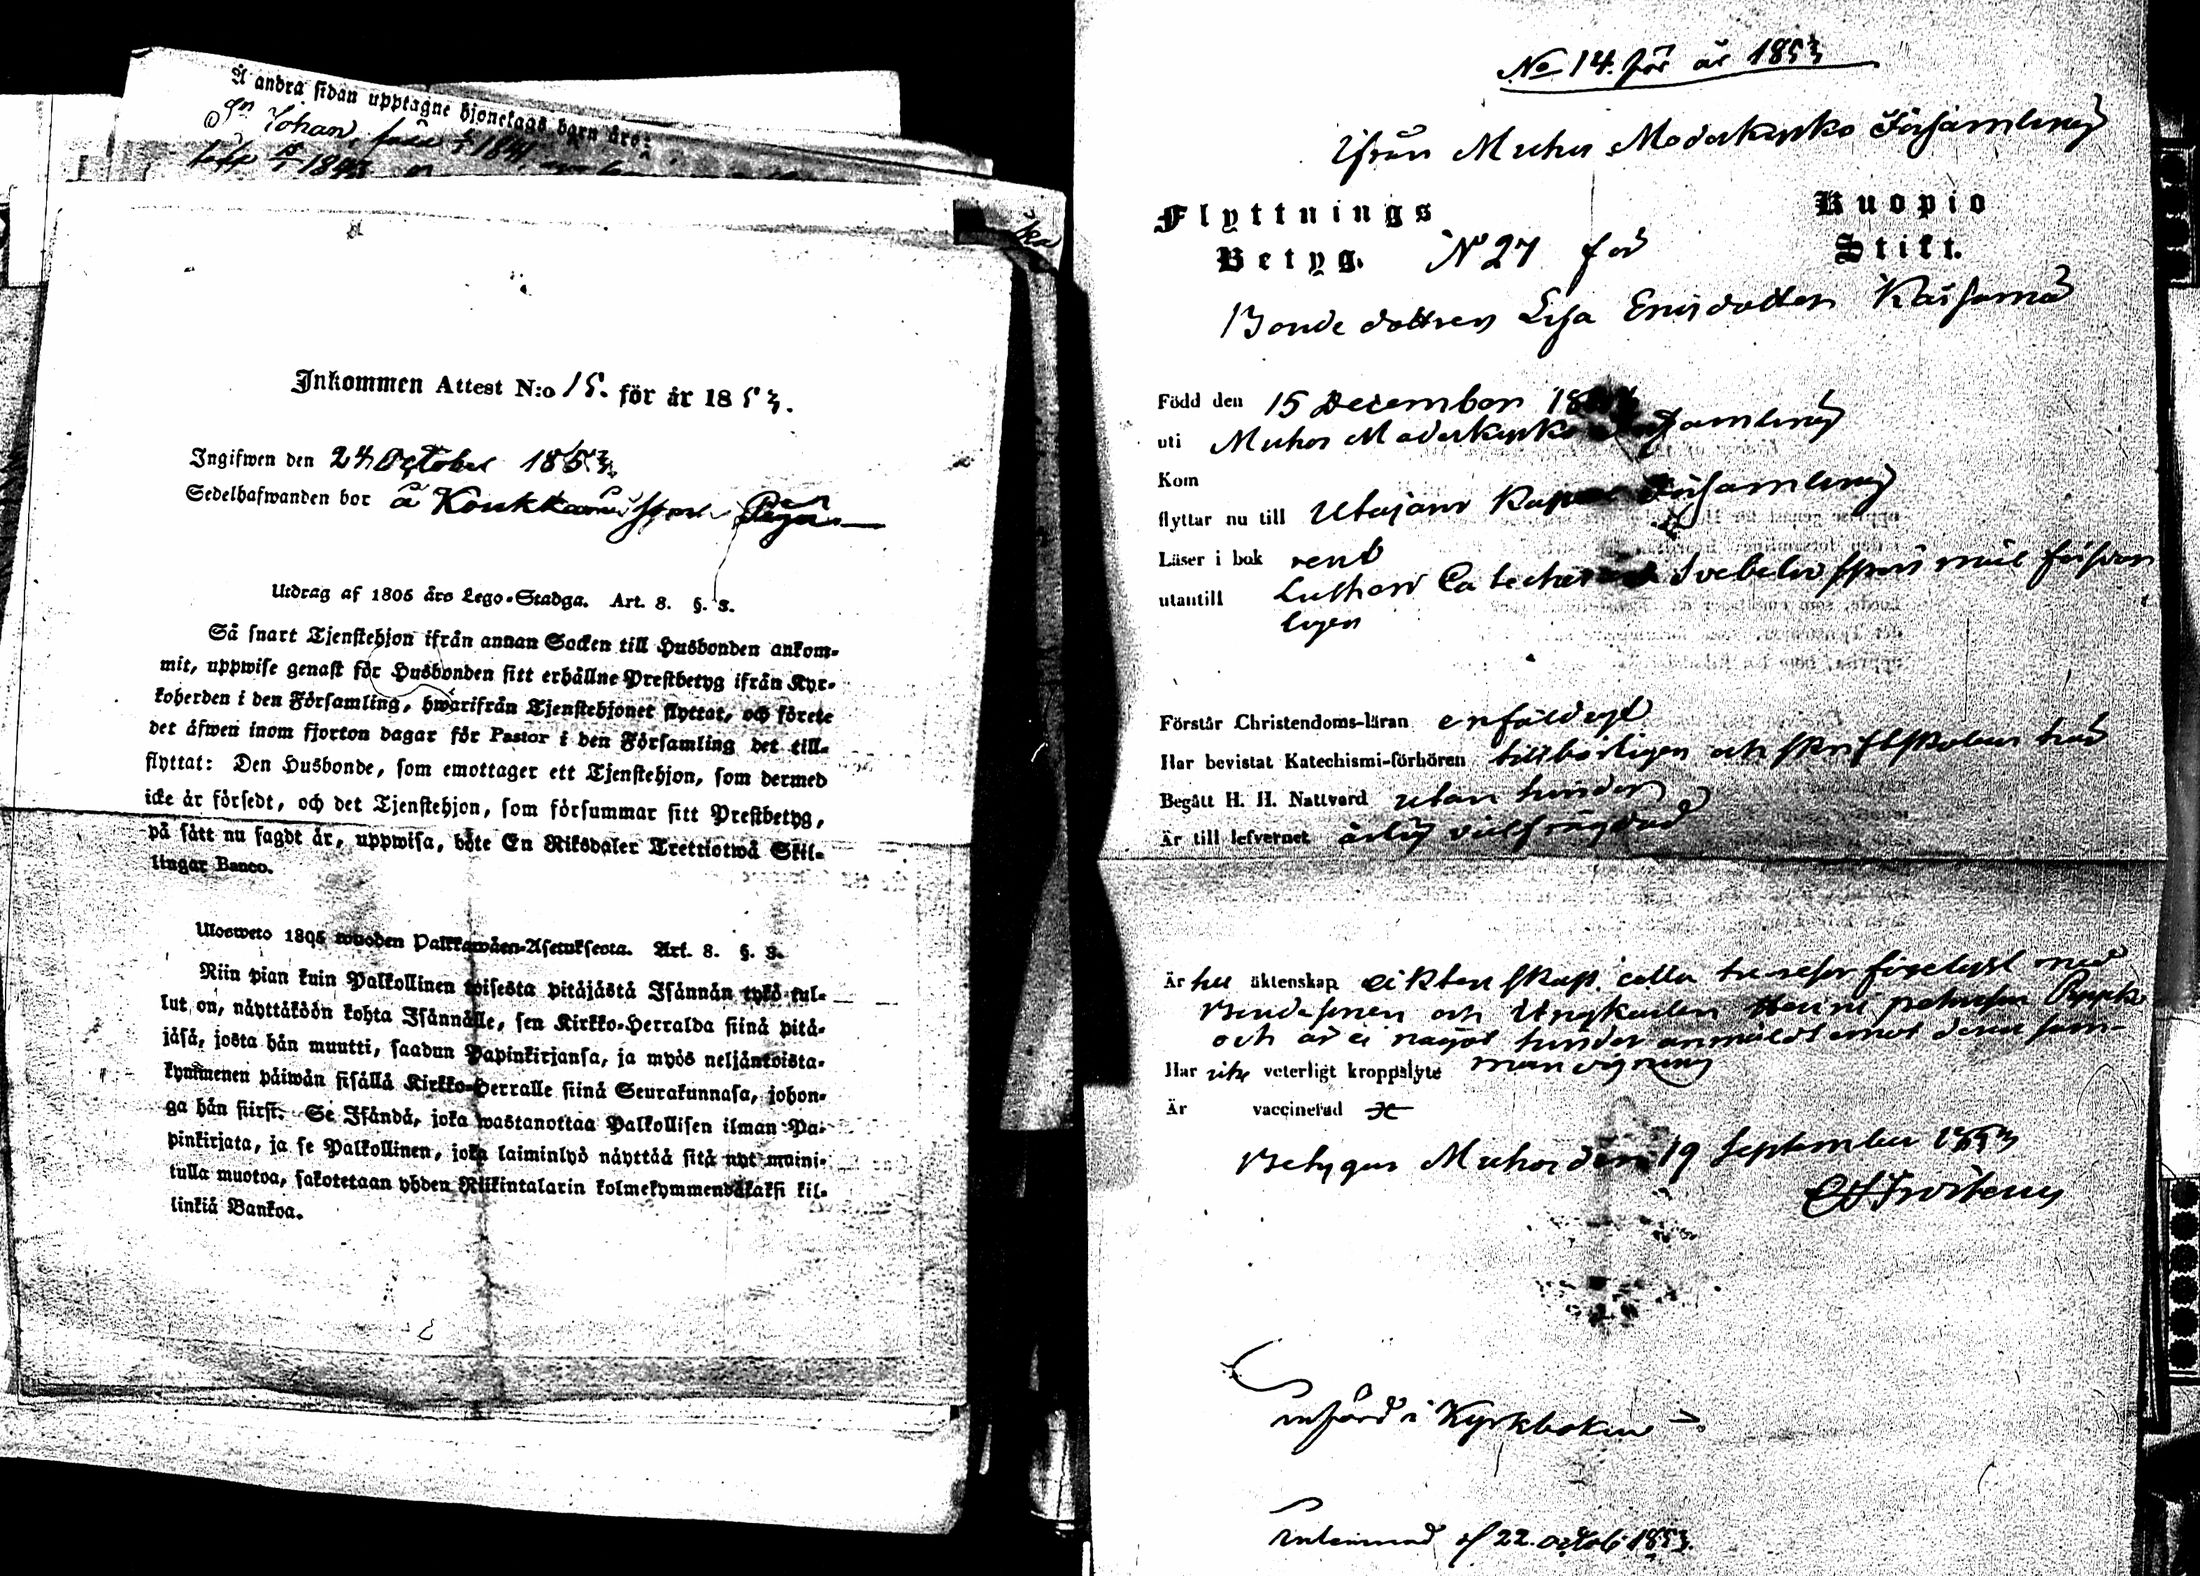 Å andra sidan upptagne hjonelags barn äro:
Johan, 1841
1843
Inkommen Attest N:o 15. för år 1853.
Ingifwen den 24 October 1853
Sedelhafwanden bor å
Utdrag af 1805 års Lego-Stadga. Art. 8. §. 3.
Så snart Tjenstehjon ifrån annan Socken till Husbonden ankom-
mit, uppwise genast för Husbonden sitt erhållne Prestbetyg ifrån Kyr-
koherden i den Församling, hwarifrån Tjenstehjonet flyttat, och förete
det äfwen inom fjorton dagar för Pastor i den Församling det till-
flyttat: Den Husbonde, som emottager ett Tjenstehjon, som dermed
icke är försedt, och det Tjenstehjon, som försummar sitt Prestbetyg,
på sätt nu sagdt är, uppwisa, böte En Riksdaler Trettiotwå Skil-
lingar Banco.
Ulosweto 1805 wuoden Palkkawäen-Asetuksesta. Art. 8. §. 3.
Niin pian kuin Palkollinen toisesta pitäjästä Isännän tykö tul-
lut on, näyttäköön kohta Isännälle, sen Kirkko-Herralda siinä pitä-
jäsä, josta hän muutti, saadun Papinkirjansa, ja myös neljäntoista-
kymmenen päiwän sisällä Kirkko-Herralle siinä Seurakunnasa, johon-
ga hän siirst. Se Isändä, joka wastanottaa Palkollisen ilman Pa-
pinkirjata, ja se Palkollinen, joka laiminlyö näyttää sitä nyt maini-
tulla muotoa, sakotetaan yhden Riikintalarin kolmekymmendäkaksi kil-
linkiä Bankoa.
No 14. för år 1853
Ifrån Muhos Moderkyrko Församling
Flyttnings Kuopio
Betyg. N 27 för Stift.
Bonde dottren Lisa Ericsdotter
Född den 15 December
uti Muhos Moderkyrko Församling
Kom
flyttar nu till Utajärvi Församling
Läser i bok rent
utantill Lutheri Svebelii
ligen
Förstår Christendoms-läran enfaldigt
Har bevistat Katechismi-förhören tillbörligen och skriftskolan
Begått H. H. Nattvard utan hinder
Är till lefvernet ärlig välfrägdad
Är till äktenskap med
Bondesonen och Ungkarlen
och är ei något hinder anmäldt emot deras sam-
Har icke veterligt kroppslyte manvigning
Är vaccinerad
Betygar Muhos den 19 September 1853
Införd i Kyrkboken
Inlemnad d 22 octob: 1853.